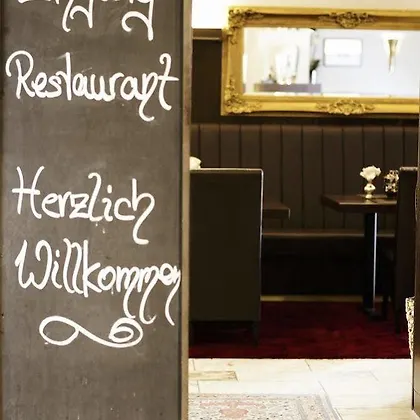 Restaurant
Herzlich
Willkommen